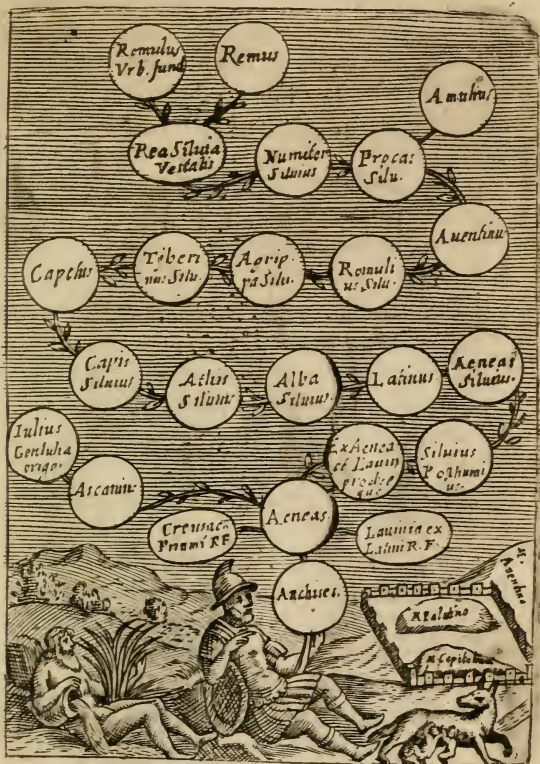 Romulus
Vrb. fund
Remus
Amulius
Rea Siluia
Vestalis
Numitor
Siluius
Procas
Silu.
Auentinu
Capetus
Tiberi
nus Silu.
Agrip
pa Silu.
Romuli
us Silu.
Capis
Siluius
Athis
Siluius
Alba
Siluius.
Latinus
Aeneas
Siluius.
Iulius
Gentis
origo.
Ascanius
Ex Aenea
et Lauin
que
Siluius
Posthumi
us.
Aeneas.
Creusa
Priami R F
Lauinia ex
Latini R. F.
Anchises.
M.
Auentino
M Palatino
M Capitoli